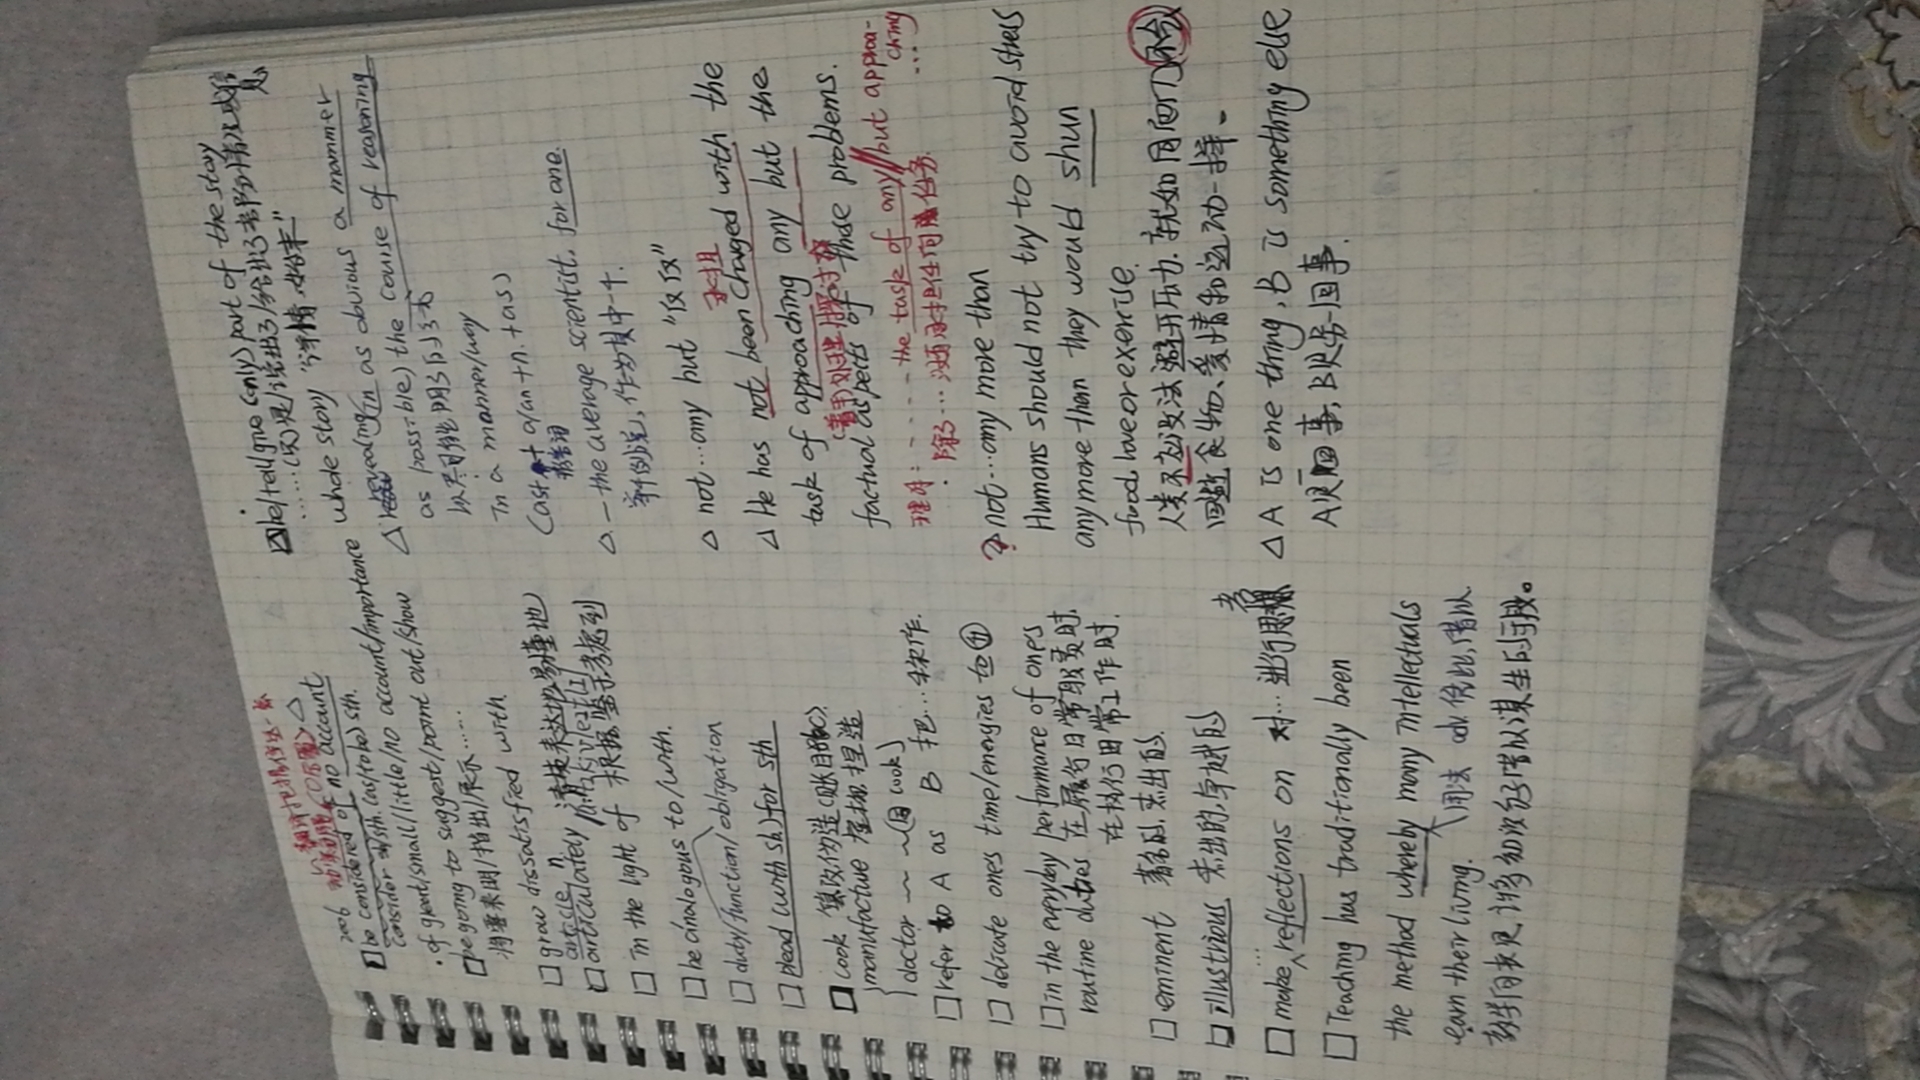 2006
be considered of no account
consider w/sth. (as/to be) sth.
· of great/small/little/no account/importance
be going to suggest/point out/show
将要来明/指出/展示……
grow dissatisfied with
article n
articulately 清楚表达地
in the light of 根据 鉴于 考虑到
be analogous to/with.
duty/function/obligation
plead with sb for sth
cook 篡改伪造(账目etc).
manufacture 虚构 捏造
doctor ~ ~(同cook)
refer to A as B 把…称作.
dedicate ones time/energies to
in the everyday performance of ones
routine duties 在履行日常职责时.
在执行日常工作时.
eminent 著名的, 杰出的.
illustrious 杰出的, 卓越的
make reflections on 对… 进行思考
Teaching has traditionally been
the method whereby many intellectuals
earn their living.
用法 adv 凭此, 借以
教学向来是许多知识分子借以谋生的手段。
he/tell/give (only) part of the story
……(只)是/说出了/给出了部分情况或信息
whole story "详情,始末"
revealing in as obvious a manner
as possible) the course of reasoning
以尽可能明了的方式
in a manner/way
(as + a/an + n. + as)
— the average scientist, for one.
举例说, 作为其中一个.
not…any but "仅仅"
承担
He has not been charged with the
task of approaching any but the
(着手)处理, 探讨
factual aspects of those problems.
理解: …… the task of any//but approa-
ching
…
除了… 没有承担任何任务.
not…any more than
Humans should not try to avoid stress
any more than they would shun
food, love or exercise.
人类不应设法避开压力. 就如同他们不会
回避食物、爱情和运动一样。
A is one thing, B is something else
A是一回事, B是另一回事.